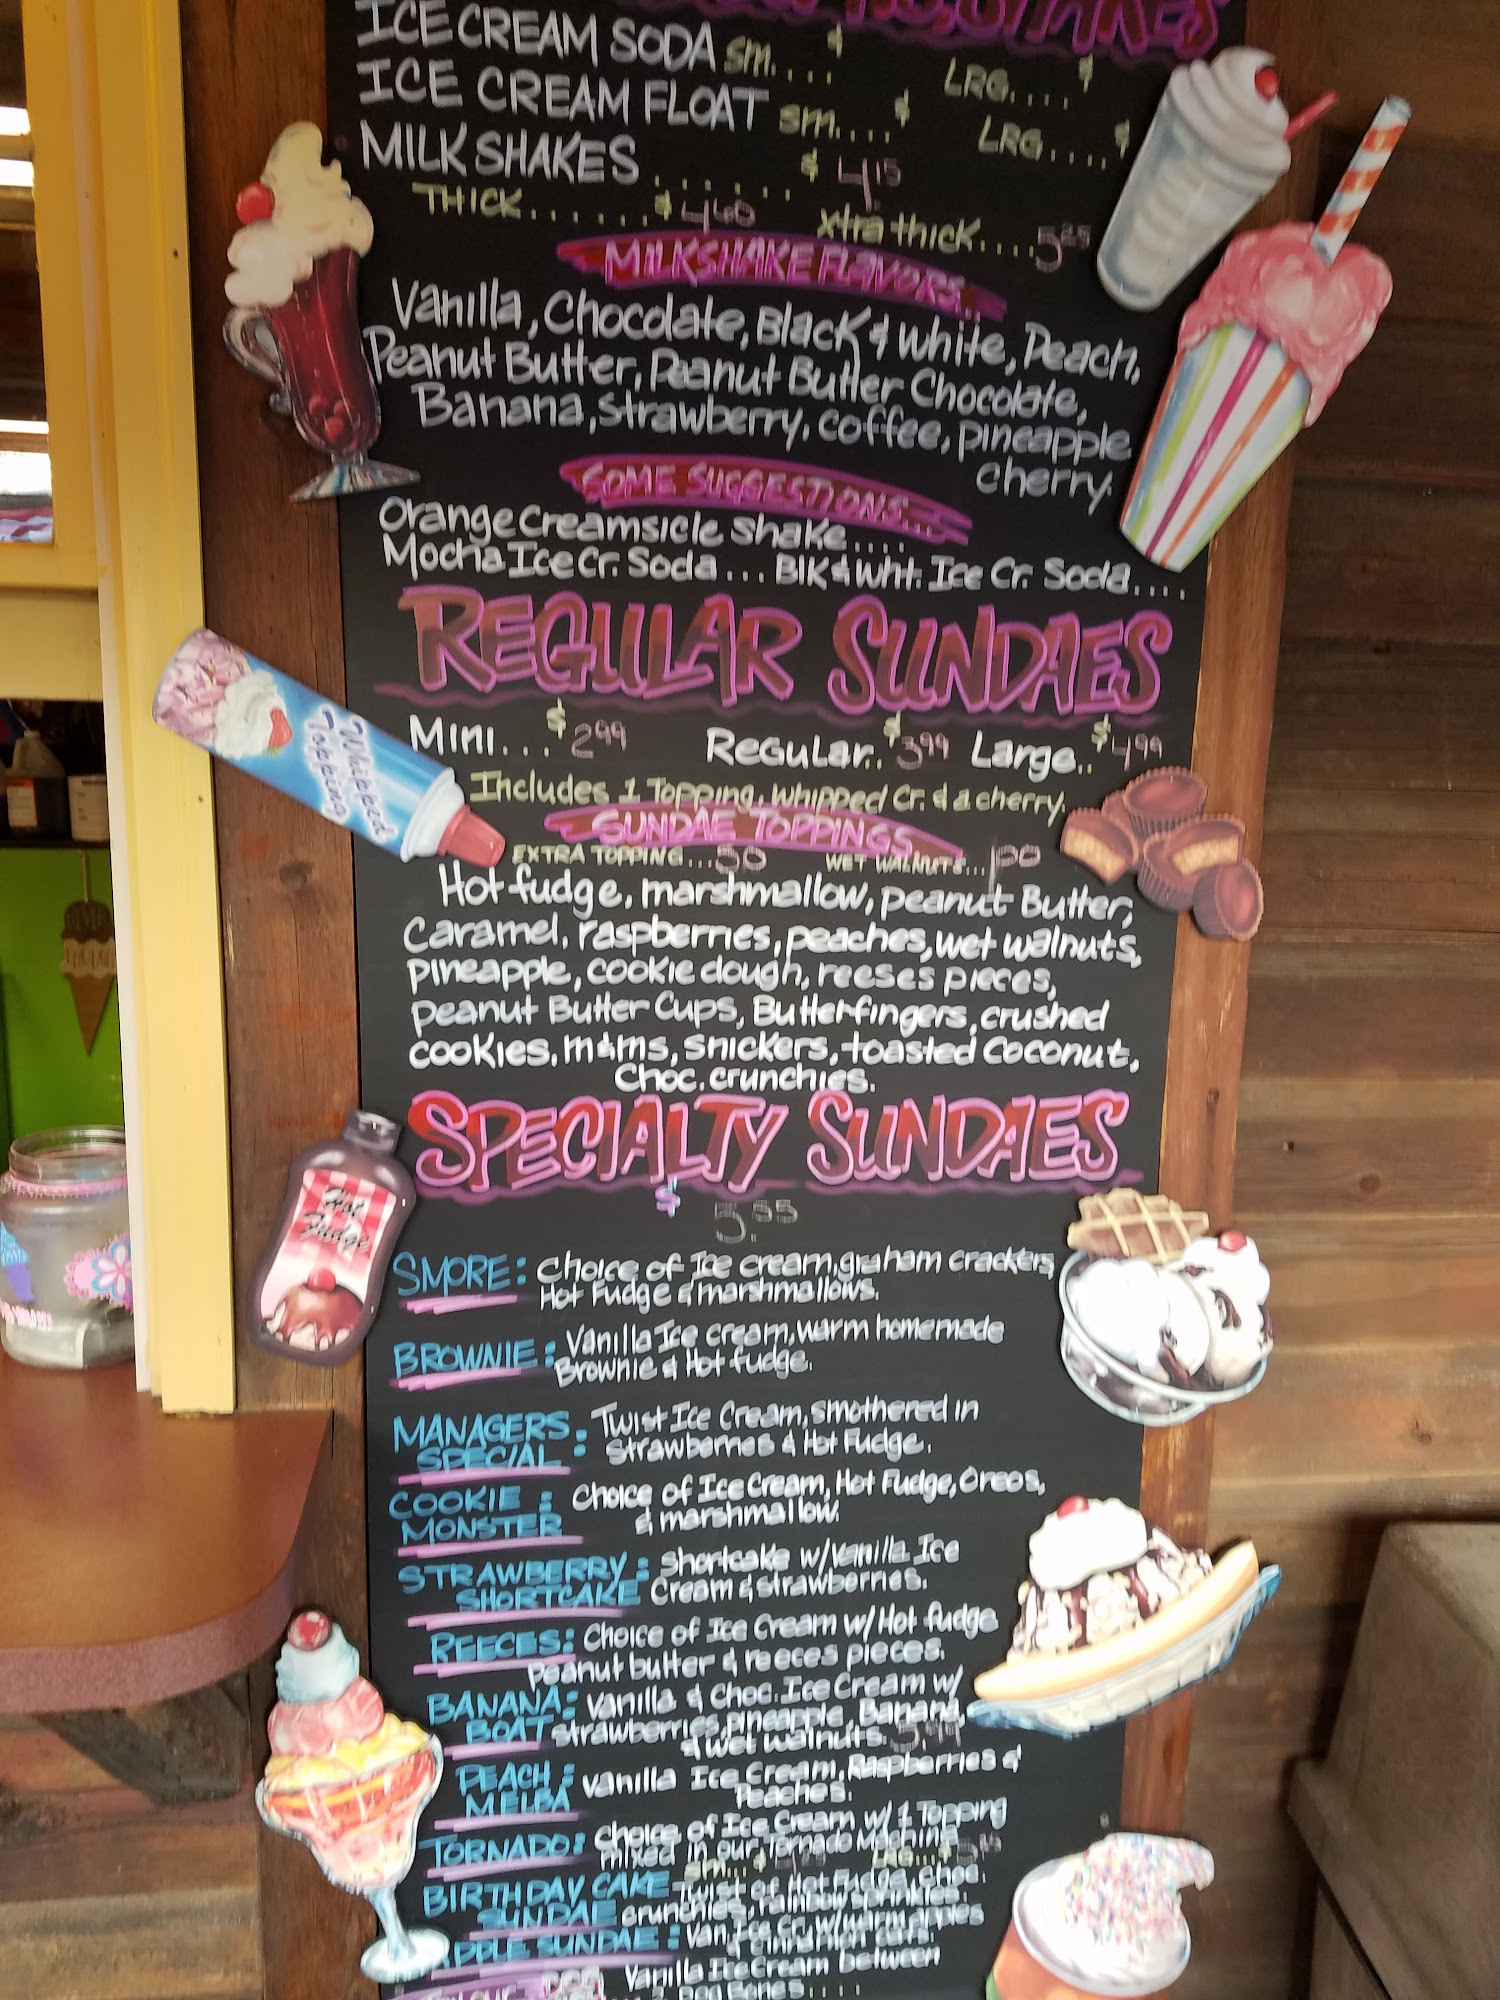 SHAKES
ICE CREAM SODA sm.... $ LRG.... $
ICE CREAM FLOAT sm.... $ LRG.... $
MILK SHAKES ...... $ 4.15
THICK....... $ 4.60 xtra thick.... 5.25
MILKSHAKE FLAVORS...
Vanilla, Chocolate, Black & White, Peach,
Peanut Butter, Peanut Butter Chocolate,
Banana, Strawberry, coffee, pineapple
cherry.
SOME SUGGESTIONS...
Orange Creamsicle Shake....
Mocha Ice Cr. Soda ... Blk & Wht. Ice Cr. Soda....
REGULAR SUNDAES
Mini... $ 2.99 Regular.. $ 3.99 Large.. $ 4.99
Includes 1 Topping, whipped Cr. & a cherry.
SUNDAE TOPPINGS
EXTRA TOPPING... 50 WET WALNUTS... 1.00
Hot fudge, marshmallow, peanut Butter,
Caramel, raspberries, peaches, wet walnuts,
pineapple, cookie dough, reeses pieces,
peanut Butter Cups, Butterfingers, crushed
cookies, m&ms, snickers, toasted coconut,
Choc. crunchies.
SPECIALTY SUNDAES
$ 5.55
SMORE: Choice of Ice cream, graham crackers,
Hot Fudge & marshmallows.
BROWNIE: Vanilla Ice cream, warm homemade
Brownie & Hot fudge.
MANAGERS SPECIAL: Twist Ice Cream, smothered in
strawberries & Hot Fudge.
COOKIE MONSTER: Choice of Ice Cream, Hot Fudge, Oreos,
& marshmallow.
STRAWBERRY SHORTCAKE: Shortcake w/ Vanilla Ice
Cream & strawberries.
REECES: Choice of Ice Cream w/ Hot fudge
peanut butter & reeces pieces.
BANANA BOAT: Vanilla & Choc. Ice Cream w/
strawberries, pineapple, Banana,
& wet walnuts. 5.99
PEACH MELBA: Vanilla Ice Cream, Raspberries &
Peaches.
TORNADO: Choice of Ice Cream w/ 1 Topping
mixed in our Tornado Machine
sm... $ LRG... $
BIRTHDAY CAKE SUNDAE Twist of Hot Fudge, choc.
crunchies, rainbow sprinkles.
APPLE SUNDAE: Van. Ice Cr. w/ warm apples
& cinnamon
Vanilla Ice Cream between
2 Dog Bones....
Whipped
Topping
Hot
Fudge